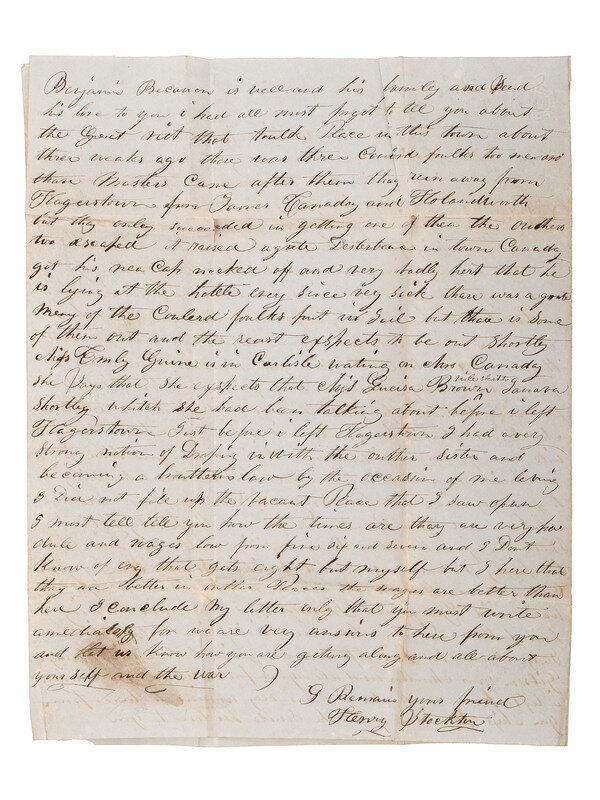 Benjamin is well and his family and Send
his love to you i had all most forgot to tell you about
the Great riot that tould Place in this town about
three weaks ago thare was three Coulerd foulks too men and
thare Masters Came after them they run away from
Hagerstown from James Canaday and Holandsworth
but they only succeeded in getting one of them the outhers
two escaped it raised a grate Desterbance in town Canaday
got his nea Cap nocked off and very badly hert that he
is lying at the hotele every since very sick thare was a grate
meny of the Coulerd foulks put in Jail but thare is some
of them out and the reast exspects to be out Shortley
Miss Emily is in Carlisle wating on Mrs Canaday
She Says that She exspects that Mis Brown
Shortley whitch She had been talking about before i left
Hagerstown Just before i left Hagerstown I had a very
strong notion of Droping in with the outher sister and
becoming a brutherinlaw by the occasion of me leving
I Did not file up the vacant Place that I saw open
I must tell tell you how the times are thay are very
dule and wages low from five six and seven and I Dont
Know of iny that gets eight but myself but I here that
they are better in outher Places the wages are better than
here I conclude my letter only that you must write
amediatley for we are very ansious to here from you
and let us Know how you are getting along and all about
your self and the war
I Remain your friend
Henry Stockton